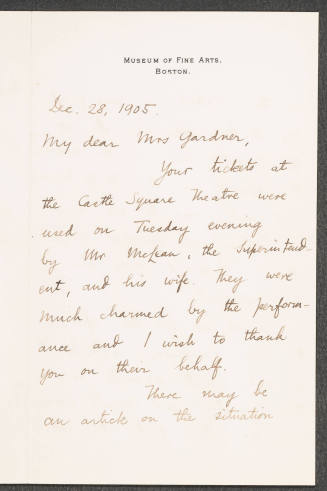 MUSEUM OF FINE ARTS.
BOSTON.
Dec. 28, 1905.
My dear Mrs Gardner,
Your tickets at
the Castle Square Theatre were
used on Tuesday evening
by Mr McLean, the Superintend-
ent, and his wife. They were
much charmed by the perform-
ance and I wish to thank
you on their behalf.
There may be
an article on the situation